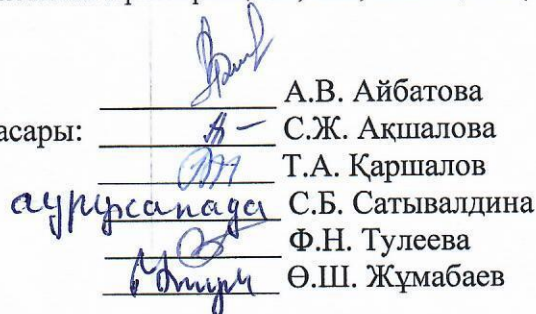 А.В. Айбатова
асары: С.Ж. Ақшалова
Т.А. Қаршалов
ауруханада С.Б. Сатывалдина
Ф.Н. Тулеева
Ө.Ш. Жұмабаев